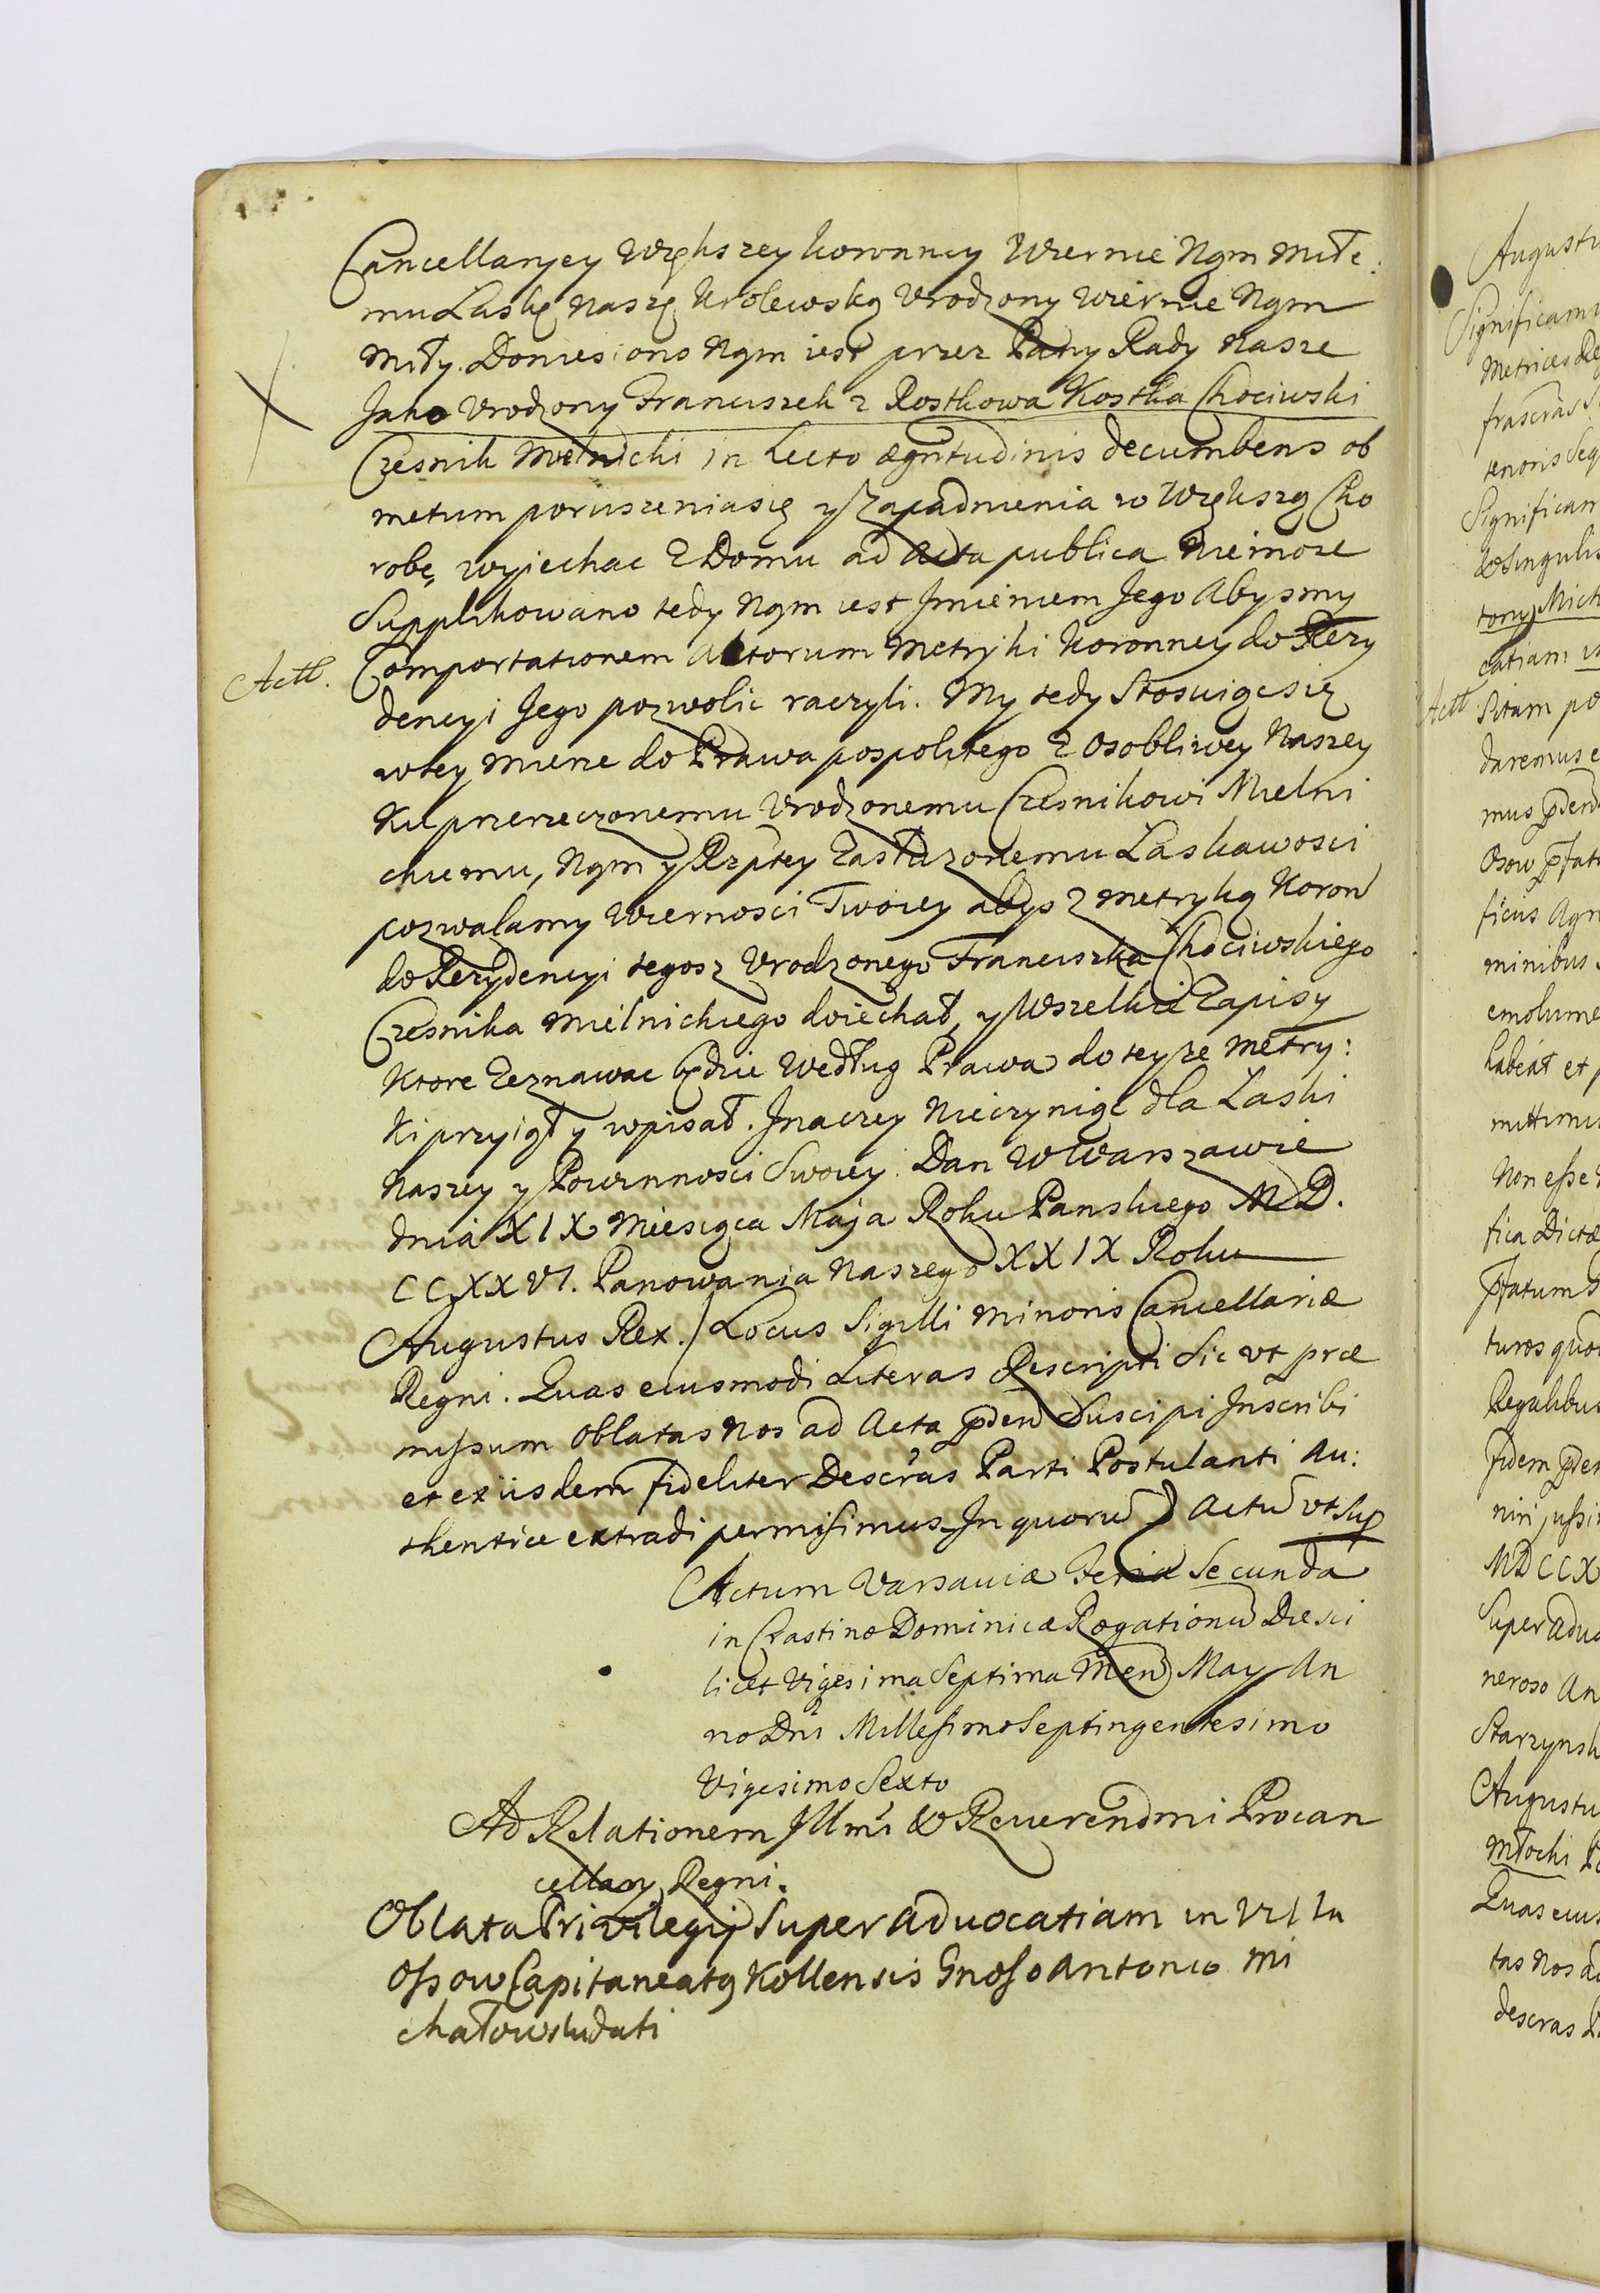 Cancellaryey Większey koronney Wiernie Nąm Miłe:
mu Łaskę Naszę Krolewską Vrodzony wiernie Nąm
Miły. Doniesiono Nąm iest przez Pany Rady Nasze
Jako Vrodzony Franciszek z Rostkowa Kostka Chociwski
Czesnik Mielnicki in Lecto ægritudinis decumbens ob
metum poruszenia się y Zapadnienia w Większą Cho
robę, wyjechac z Domu ad Acta publica Niemoze
Supplikowano tedy Nąm iest Jmieniem Jego Abysmy
Actt. Comportationem Actorum Metryki Koronney do Rezy
dencyi Jego pozwolic raczyli. My tedy Stosuiąc się
w tey mierze do Prawa pospolitego z Osobliwey Naszey
Ku przerzeczonemu Vrodzonemu Czesnikowi Mielni
ckiemu, Nąm y Rzptey Zasłuzonemu Łaskawosci
pozwalamy Wiernosci Twoiey abys z Metryką Koron
do Rezydencyi tegosz Vrodzonego Franciszka Chociwskiego
Czesnika Mielnickiego doiechał, y Wszelkie Zapisy
Ktore Zeznawac będzie Według Prawa do teyze Metry:
Ki przyiął y wpisał. Jnaczey Nieczyniąc dla Łaski
Naszey y Powinnosci Swoiey. Dan w Warszawie
dnia XIX Miesiąca Maja Roku Panskiego MD.
CCXXVI. Panowania Naszego XXIX Roku
Augustus Rex. / Locus Sigilli Minoris Cancellariæ
Regni. Quas eiusmodi Literas Rescripti Sic vt præ
missum Oblatas Nos ad Acta pden Suscipi Jnscribi
et ex iisdem fideliter Descras Parti Postulanti Au:
thentice extradi permisimus. Jn quoru Actu vt Sup
Actum Varsaviæ Feria Secunda
in Crastino Dominicæ Rogationu Die sci
licet Vigesima Septima Men May An
no Dni Millesimo Septingentesimo
Vigesimo Sexto
Ad Relationem Jllmi & Reverendmi Procan
cellary Regni.
Oblata Privilegij Super Advocatiam in Villa
Ossow Capitaneatg Kollensis Gnoso Antonio Mi
chałowski dati
Augustu
Significam
Metrices Re
frascras S
tenoris Seq
Significam
& Singulis
tony Mich
catiam
Actt. Sitam po
daremus e
mus pden
Osow pfat
ficus Agr
minibus
emolume
habeat et p
mittimus
Non esse
fica Dictæ
pfatum
turos quo
Regalibus
fidem pdem
niri jussi
MDCCX
Super Advo
neroso An
Starzynsk
Augustu
Młocki P
Quas eius
tas Nos ad
descras P